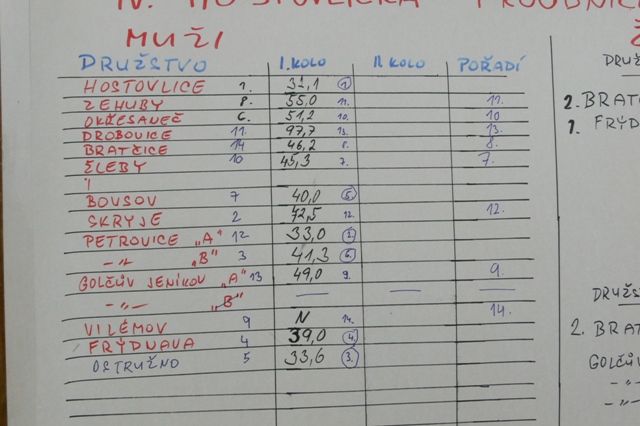 IV. HOSTOVLICKÁ PROUDNICE
MUŽI
DRUŽSTVO I. KOLO II. KOLO POŘADÍ
HOSTOVLICE 1. 31,1 1.
ZEHUBY 8. 55,0 11. 11.
OKŘESANEČ 6. 51,2 10. 10
DROBOVICE 11. 97,7 13. 13.
BRATČICE 14 46,2 8. 8.
ŽLEBY 10 45,3 7. 7.
BOUSOV 7 40,0 5.
SKRYJE 2 72,5 12. 12.
PETROVICE „A" 12 33,0 2.
-"- „B" 3 41,3 6.
GOLČŮV JENÍKOV „A" 13 49,0 9. 9.
-"- „B" — — —
VILÉMOV 9 N 14. 14.
FRÝDNAVA 4 39,0 4.
OSTRUŽNO 5 33,6 3.
DRUŽ
2. BRAT
1. FRÝD
DRUŽST
2. BRAT
GOLČŮV
-"-
-"-